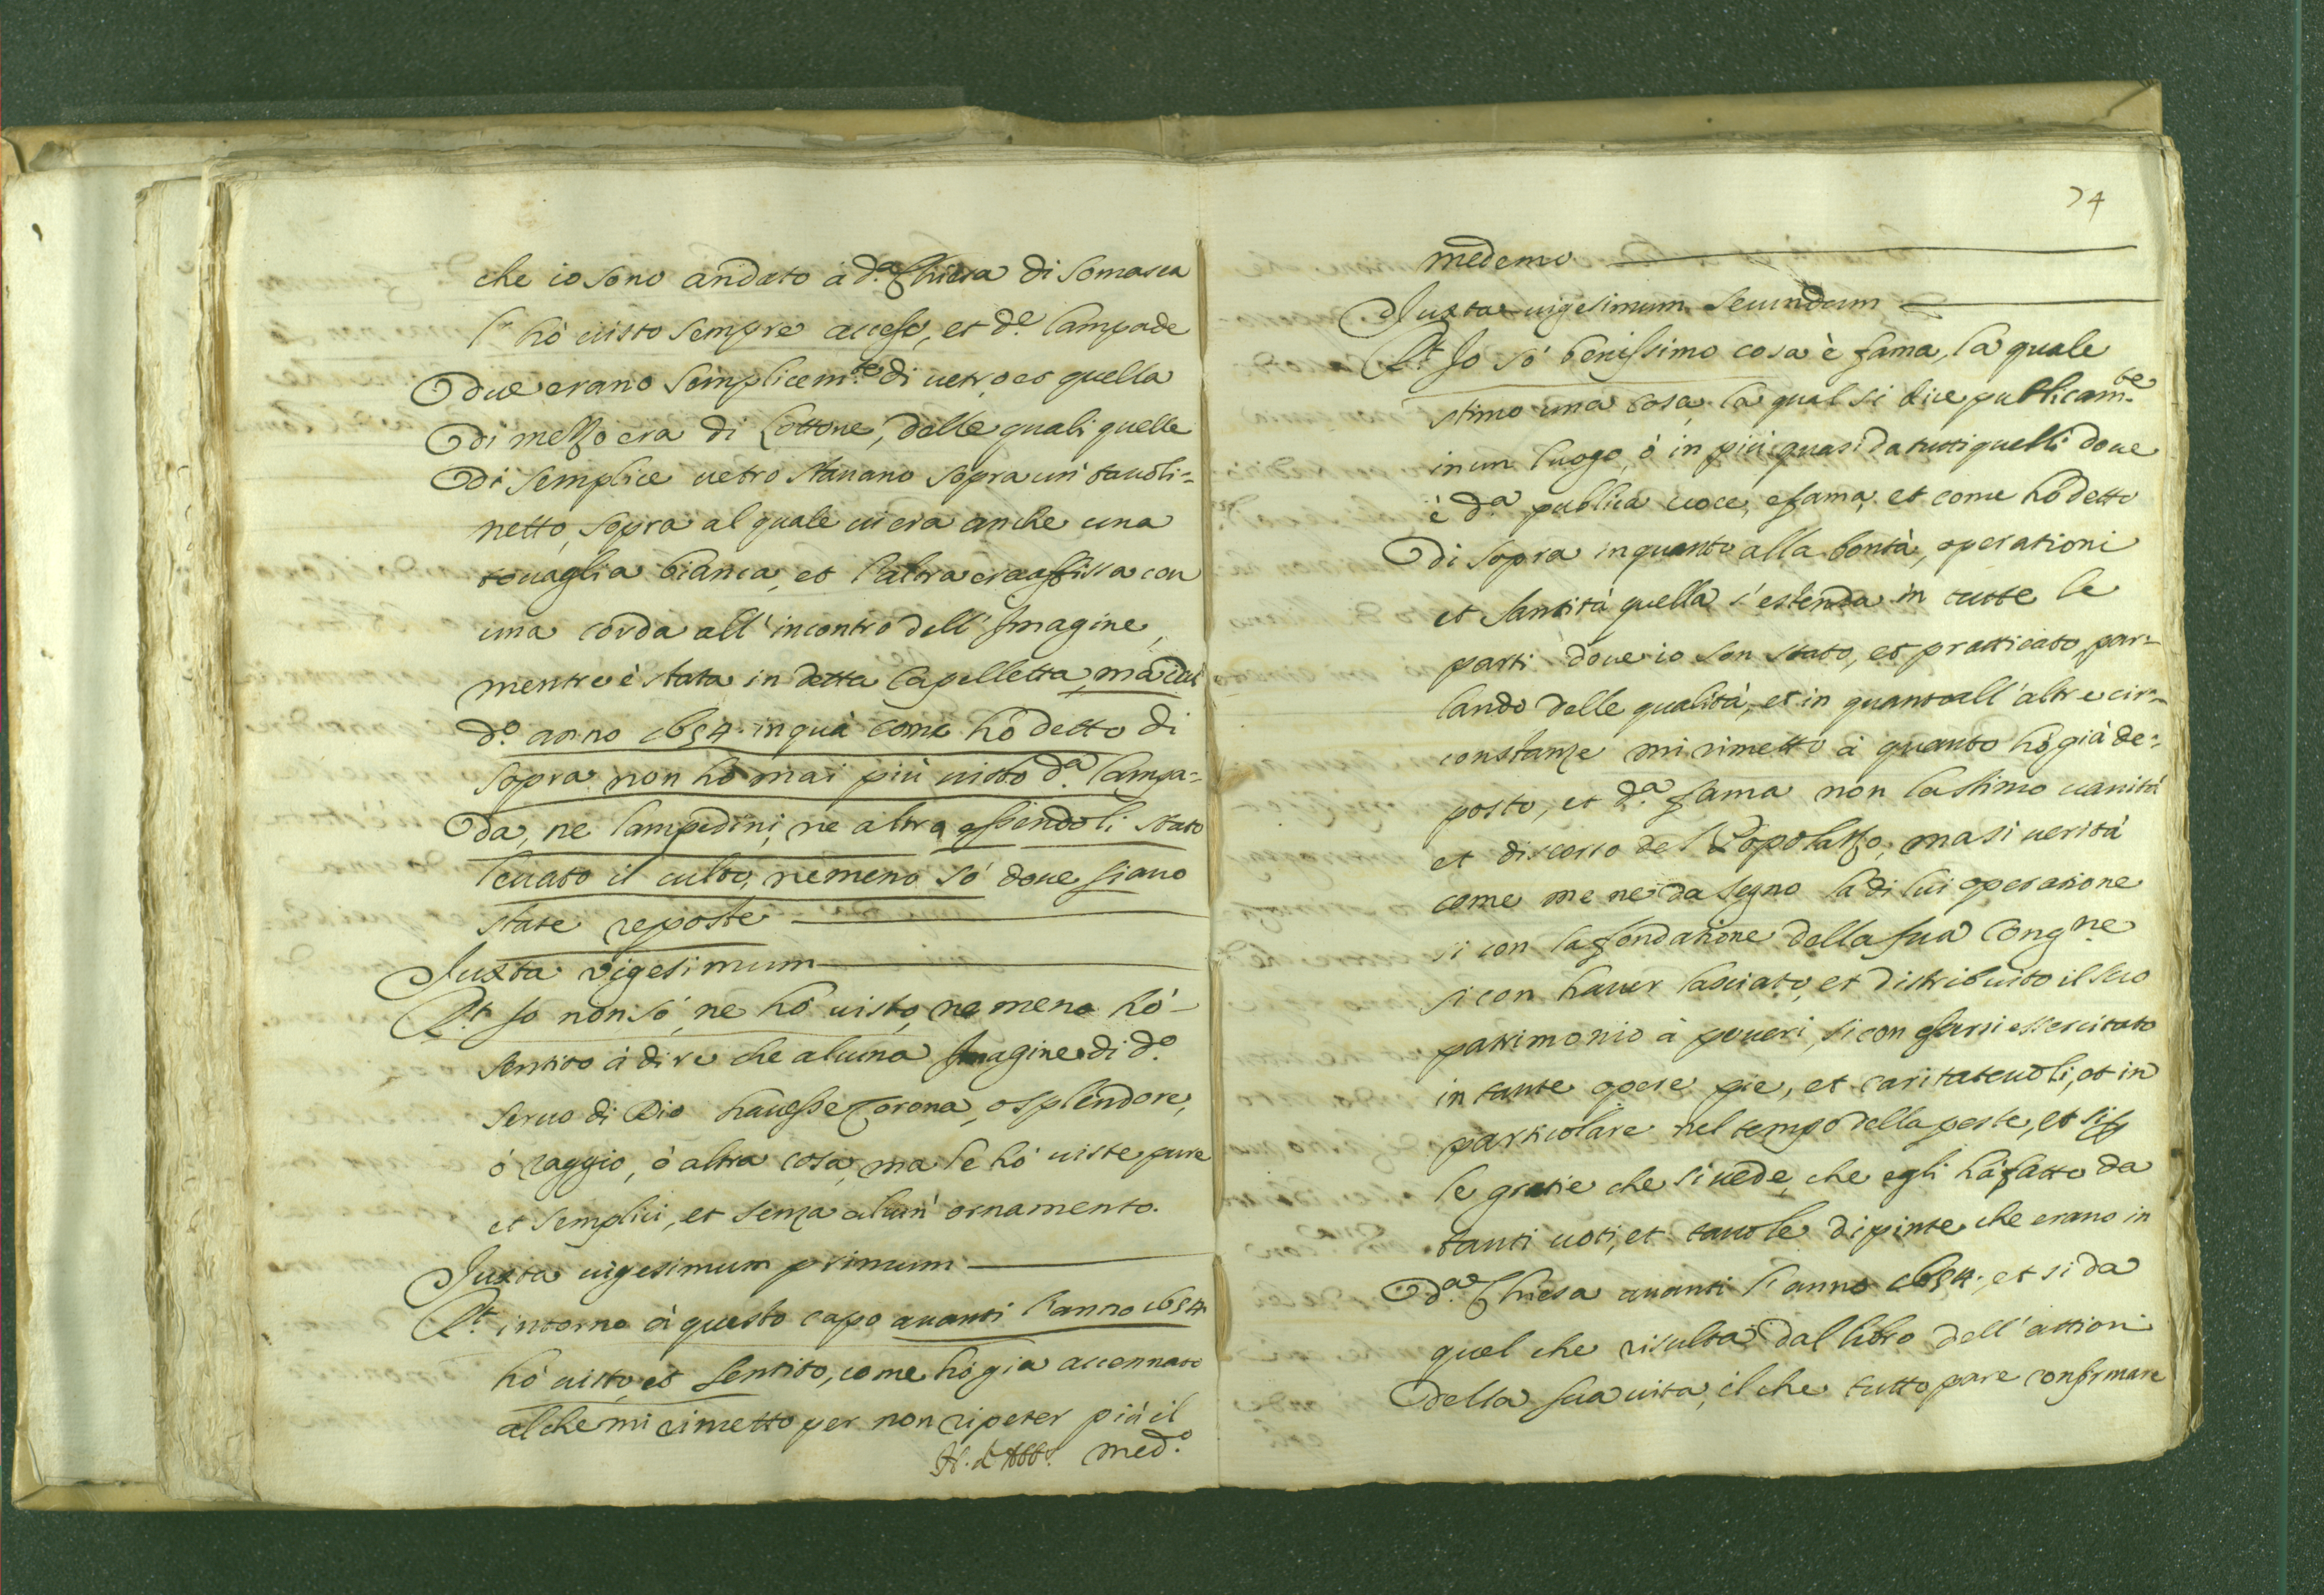 che io sono andato à d.ª Chiesa di Somasca
l'hò uisto sempre acceso, et d.e lampade
due erano semplicem.te di uetro, et quella
di mezzo era di Lottone, delle quali quelle
di semplice uetro stauano sopra un tauoli=
netto, sopra al quale ui era anche una
touaglia bianca, et l'altra era affissa con
una corda all'incontro dell'Imagine,
mentre è stata in detta Capelletta, mà dal
d.º anno 1654. in quà come hò detto di
sopra non hò mai più uisto d.ª lampa=
da, ne lampedini, ne altro, essendoli stato
leuato il culto, ne meno sò doue siano
state reposte
Juxta vigesimum
R.t Io non sò, ne hò uisto, ne meno hò
sentito à dire che alcuna Imagine di d.º
seruo di Dio hauesse Corona, ò splendore,
ò raggio, ò altra cosa, ma le hò uiste pure
et semplici, et senza alcun' ornamento.
Juxta uigesimum primum
R.t intorno à questo capo auanti l'anno 1654
hò uisto, et sentito, come hò già accennato
al che mi rimetto per non ripeter più il
med.º
74
medemo
Juxta uigesimum secundum
R.t Io sò benissimo cosa è fama, la quale
stimo una cosa, la qual si dice publicam.te
in un luogo, ò in più quasi da tutti quelli doue
è d.ª publica uoce, e fama, et come hò detto
di sopra in quanto alla bontà, operationi
et santità quella s'estenda in tutte le
parti doue io son stato, et pratticato, par=
lando delle qualità, et in quanto all'altre cir=
constanze mi rimetto à quanto hò già de=
posto, et d.ª fama non la stimo uanità
et discorso del Popolazzo, ma si uerità
come me ne dà segno la di lui operatione
si con la fondatione della sua Cong.ne
si con hauer lasciato, et distribuito il suo
patrimonio à poueri, si con essersi essercitato
in tante opere pie, et caritateuoli, et in
particolare nel tempo della peste, et si p
le gratie che si uede, che egli hà fatto da
tanti uoti, et tauole dipinte che erano in
d.ª Chiesa auanti l'anno 1654. et si da
quel che risulta dal libro dell'attioni
della sua uita, il che tutto pare confirmare